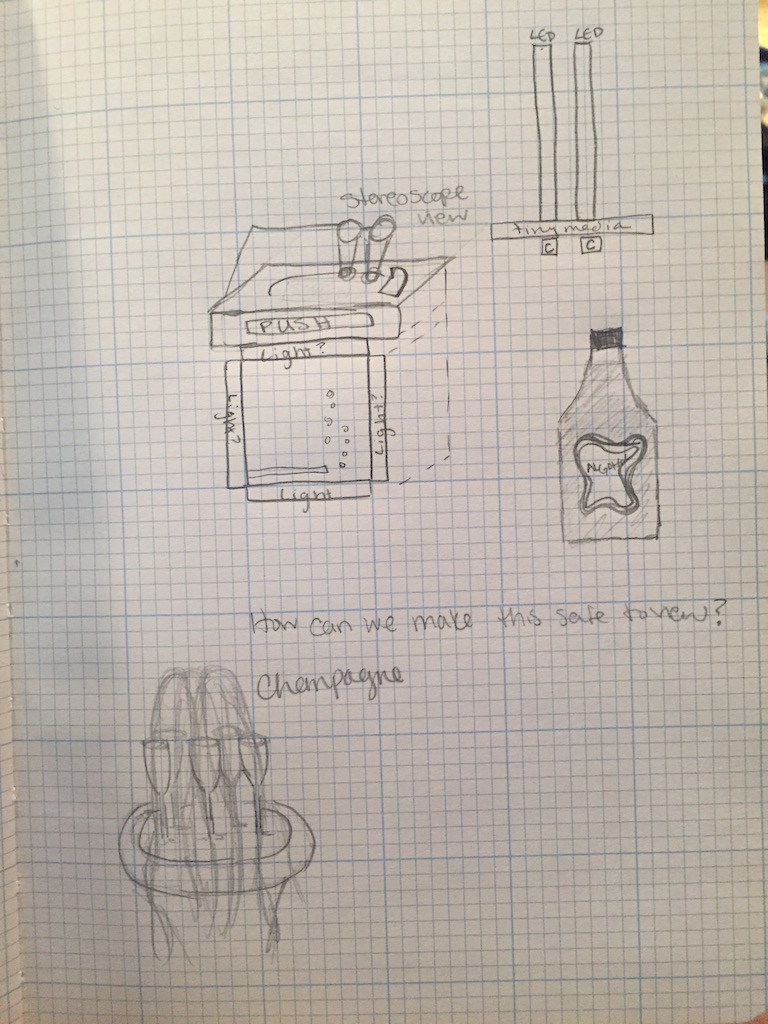 LED LED
stereoscope
view
tiny media
C C
PUSH
Light?
Light?
Light?
Light
How can we make this safe to view?
Champagne